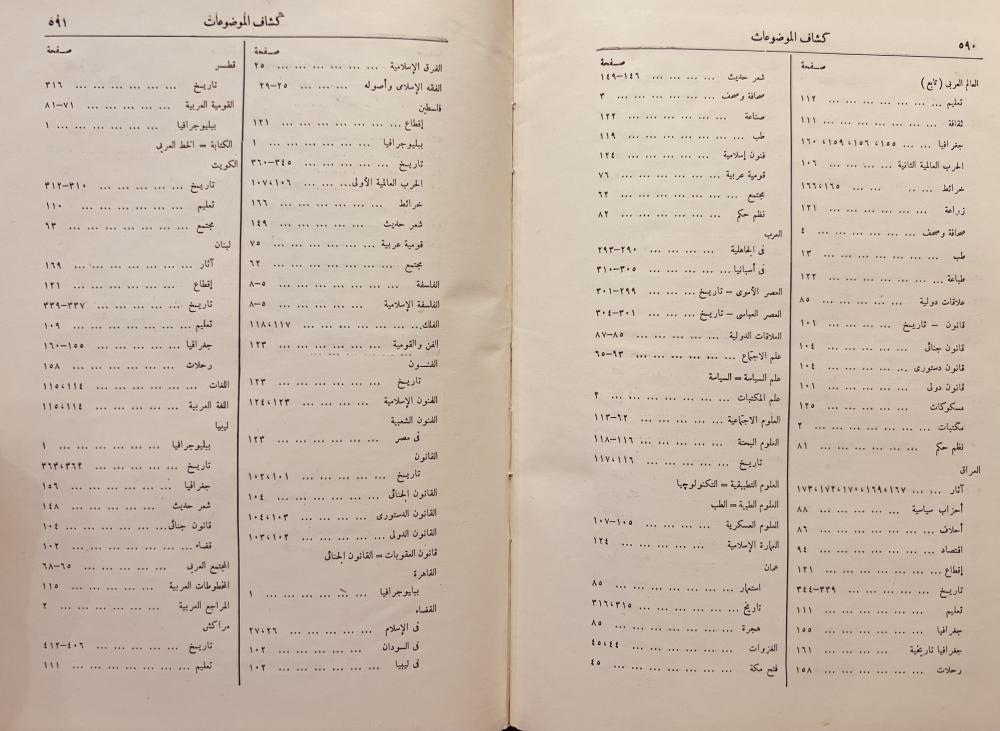 ٥٩٠
كشاف الموضوعات
صفحة
العالم العربى ( تابع )
تعليم ... ... ... ... ... ... ... ١١٢
ثقافة ... ... ... ... ... ... ... ١١١
جغرافيا ... ... ١٥٥، ١٥٦، ١٥٩، ١٦٠
الحرب العالمية الثانية ... ... ... ١٠٦
خرائط ... ... ... ١٦٥، ١٦٦
زراعة ... ... ... ... ... ... ١٢١
صحافة وصحف ... ... ... ... ... ٤
طب ... ... ... ... ... ... ... ١٣
طباعة ... ... ... ... ... ... ... ١٢٢
علاقات دولية ... ... ... ... ... ٨٥
قانون – تاريخ ... ... ... ... ١٠١
قانون جنائى ... ... ... ... ... ١٠٤
قانون دستورى ... ... ... ... ... ١٠٤
قانون دولى ... ... ... ... ... ١٠١
مسكوكات ... ... ... ... ... ١٢٥
مكتبات ... ... ... ... ... ... ٢
نظم حكم ... ... ... ... ... ٨١
العراق
آثار ... ... ١٦٧، ١٦٩، ١٧٠، ١٧٢، ١٧٣
أحزاب سياسية ... ... ... ... ... ٨٨
أحلاف ... ... ... ... ... ... ٨٦
اقتصاد ... ... ... ... ... ... ٩٤
إقطاع ... ... ... ... ... ... ١٢١
تاريخ ... ... ... ... ... ٣٣٩–٣٤٤
تعليم ... ... ... ... ... ... ١١١
جغرافيا ... ... ... ... ... ... ١٥٥
جغرافيا تاريخية ... ... ... ... ١٦١
رحلات ... ... ... ... ... ... ١٥٨
صفحة
شعر حديث ... ... ... ... ١٤٦–١٤٩
صحافة وصحف ... ... ... ... ... ٣
صناعة ... ... ... ... ... ... ١٢٢
طب ... ... ... ... ... ... ... ١١٩
فنون إسلامية ... ... ... ... ... ١٢٤
قومية عربية ... ... ... ... ... ٧٦
مجتمع ... ... ... ... ... ... ٦٢
نظم حكم ... ... ... ... ... ... ٨٢
العرب
فى الجاهلية ... ... ... ... ٢٩٠–٢٩٣
فى أسبانيا ... ... ... ... ٣٠٥–٣١٠
العصر الأموى – تاريخ ... ... ... ٢٩٩–٣٠١
العصر العباسى – تاريخ ... ... ... ٣٠١–٣٠٤
العلاقات الدولية ... ... ... ... ٨٥–٨٧
علم الاجتماع ... ... ... ... ... ٦٣–٦٥
علم السياسة = السياسة
علم المكتبات ... ... ... ... ... ... ٢
العلوم الاجتماعية ... ... ... ... ٦٢–١١٣
العلوم البحتة ... ... ... ... ١١٦–١١٨
تاريخ ... ... ... ... ... ١١٦، ١١٧
العلوم التطبيقية = التكنولوچيا
العلوم الطبية = الطب
العلوم العسكرية ... ... ... ... ١٠٥–١٠٧
العمارة الإسلامية ... ... ... ... ١٢٤
عمان
استعمار ... ... ... ... ... ... ٨٥
تاريخ ... ... ... ... ... ٣١٥، ٣١٦
هجرة ... ... ... ... ... ... ٨٥
الغزوات ... ... ... ... ... ٤٤، ٤٥
فتح مكة ... ... ... ... ... ... ٤٥
كشاف الموضوعات
٥٩١
صفحة
الفرق الإسلامية ... ... ... ... ... ٢٥
الفقه الإسلامى وأصوله ... ... ... ٢٥–٢٩
فلسطين
إقطاع ... ... ... ... ... ... ... ١٢١
ببليوجرافيا ... ... ... ... ... ... ١
تاريخ ... ... ... ... ... ٣٤٥–٣٦٠
الحرب العالمية الأولى ... ... ... ١٠٦، ١٠٧
خرائط ... ... ... ... ... ... ١٦٦
شعر حديث ... ... ... ... ... ١٤٩
قومية عربية ... ... ... ... ... ٧٥
مجتمع ... ... ... ... ... ... ٦٢
الفلسفة ... ... ... ... ... ... ٥–٨
الفلسفة الإسلامية ... ... ... ... ٥–٨
الفلك ... ... ... ... ... ... ١١٧، ١١٨
الفن والقومية ... ... ... ... ... ١٢٣
الفنون
تاريخ ... ... ... ... ... ... ١٢٣
الفنون الإسلامية ... ... ... ... ١٢٣، ١٢٤
الفنون الشعبية
فى مصر ... ... ... ... ... ... ١٢٣
القانون
تاريخ ... ... ... ... ... ١٠١، ١٠٢
القانون الجنائى ... ... ... ... ... ١٠٤
القانون الدستورى ... ... ... ... ١٠٣، ١٠٤
القانون الدولى ... ... ... ... ١٠٢، ١٠٣
قانون العقوبات = القانون الجنائى
القاهرة
ببليوجرافيا ... ... ... ... ... ... ١
القضاء
فى الإسلام ... ... ... ... ... ٢٦، ٢٧
فى السودان ... ... ... ... ... ١٠٢
فى ليبيا ... ... ... ... ... ... ١٠٢
صفحة
قطر
تاريخ ... ... ... ... ... ... ٣١٦
القومية العربية ... ... ... ... ... ٧١–٨١
ببليوجرافيا ... ... ... ... ... ... ١
الكتابة = الخط العربى
الكويت
تاريخ ... ... ... ... ... ٣١٠–٣١٢
تعليم ... ... ... ... ... ... ١١٠
مجتمع ... ... ... ... ... ... ٦٣
لبنان
آثار ... ... ... ... ... ... ١٦٩
إقطاع ... ... ... ... ... ... ١٢١
تاريخ ... ... ... ... ... ٣٣٧–٣٣٩
تعليم ... ... ... ... ... ... ١٠٩
جغرافيا ... ... ... ... ... ١٥٥–١٦٠
رحلات ... ... ... ... ... ... ١٥٨
اللغات ... ... ... ... ... ١١٤، ١١٥
اللغة العربية ... ... ... ... ١١٤، ١١٥
ليبيا
ببليوجرافيا ... ... ... ... ... ... ١
تاريخ ... ... ... ... ... ٣٦٢، ٣٦٣
جغرافيا ... ... ... ... ... ... ١٥٦
شعر حديث ... ... ... ... ... ١٤٨
قانون جنائى ... ... ... ... ... ١٠٤
قضاء ... ... ... ... ... ... ١٠٢
المجتمع العربى ... ... ... ... ٦٥–٦٨
المخطوطات العربية ... ... ... ... ١١٥
المراجع العربية ... ... ... ... ... ٢
مراكش
تاريخ ... ... ... ... ... ٤٠٦–٤١٢
تعليم ... ... ... ... ... ... ١١١